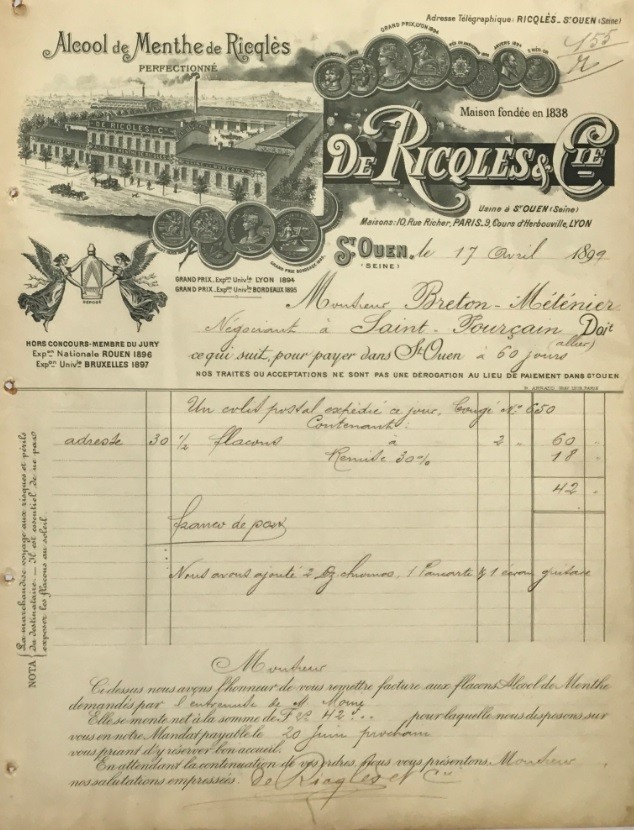 Adresse Télégraphique: RICQLÈS-ST OUEN (Seine)
155
Alcool de Menthe de Ricqlès
PERFECTIONNÉ
GRAND PRIX, LYON 1894
Maison fondée en 1838
DE RICQLÈS & CIE
DE RICQLÈS & CIE
Usine à ST OUEN (Seine)
Maisons: 10, Rue Richer, PARIS _ 9, Cours d'Herbouville, LYON
ST OUEN, le 17 Avril 1899
(SEINE)
GRAND PRIX _ Expon Univlle LYON 1894
GRAND PRIX _ Expon Univlle BORDEAUX 1895
Monsieur Breton-Méténier
HORS CONCOURS-MEMBRE DU JURY
Expon Nationale ROUEN 1896
Expon Univlle BRUXELLES 1897
Négociant à Saint-Pourçain Doit
(allier)
ce qui suit, pour payer dans St Ouen à 60 jours
NOS TRAITES OU ACCEPTATIONS NE SONT PAS UNE DÉROGATION AU LIEU DE PAIEMENT DANS ST OUEN
Un colis postal expédié ce jour, Congé No 650
Contenant:
adresse 30 ½ flacons à 2 " 60 "
Remise 30% 18 "
42 "
franco de port
Nous avons ajouté 2 Dz chromos, 1 Pancarte & 1 écran
NOTA
La marchandise voyage aux risques et périls
du destinataire. — Il est essentiel de ne pas
exposer les flacons au soleil.
Monsieur
Ci dessus nous avons l'honneur de vous remettre facture aux flacons Alcool de Menthe
demandés par l'entremise de M
Elle se monte net à la somme de F 42 pour laquelle nous disposons sur
vous en notre Mandat payable le 20 Juin prochain
vous priant d'y réserver bon accueil.
En attendant la continuation de vos ordres, Nous vous présentons, Monsieur
nos salutations empressées. De Ricqlès et Cie